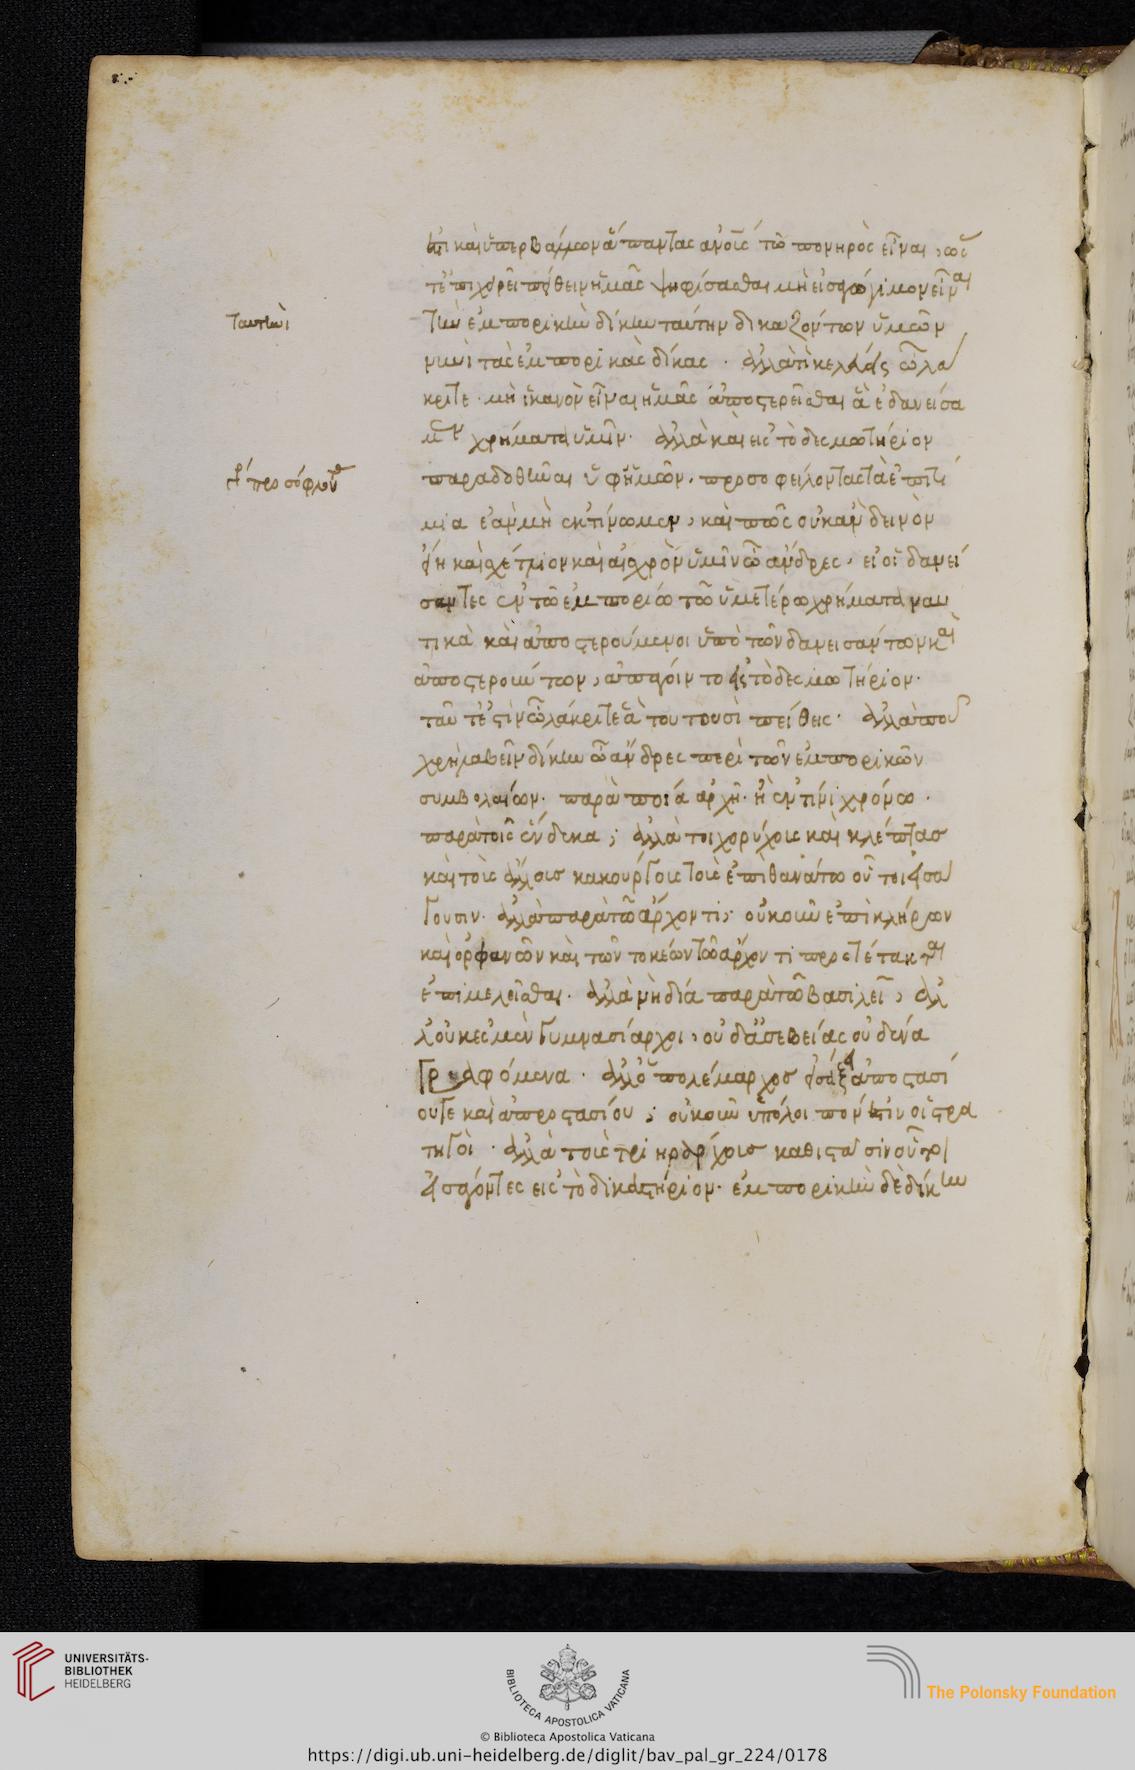 ἐστι καὶ ὑπερβάλλων ἅπαντας ἀνοις τῶ πονηρὸς εἶναι, ὥς
τἐπιχειρεῖ πείθειν ὑμᾶς ψηφίσασθαι μὴ εἰσαγώγιμον εἶναι
ταυτηνὶ
τὴν ἐμπορικὴν δίκην ταύτην δικαζόντων ὑμῶν
νυνὶ τὰς ἐμπορικὰς δίκας · ἀλλὰ τί κελεύεις ὦ λα
κριτε · μὴ ἱκανὸν εἶναι ἡμᾶς ἀποστερεῖσθαι ἃ ἐδανείσα
μεν χρήματα ὑμῖν · ἀλλὰ καὶ εἰς τὸ δεσμωτήριον
προσόφλον
παραδοθῆναι ὑφ' ἡμῶν · προσοφείλοντας τὰ ἐπιτί
μια ἐὰν μὴ ἐκτίνωμεν, καὶ πῶς οὐκ ἂν δεινὸν
εἴη καὶ σχέτλιον καὶ αἰσχρὸν ὑμῖν ὦ ἄνδρες, εἰ οἱ δανεί
σαντες ἐν τῶ ἐμπορίω τῶ ὑμετέρω χρήματα ναυ
τικὰ καὶ ἀποστερούμενοι ὑπὸ τῶν δανεισαντων καὶ
ἀποστερούντων, ἀπαγόιντο εἰς τὸ δεσμωτήριον ·
ταῦτ' ἐστὶν ὦ λάκριτε ἃ τουτουσὶ πείθεις · ἀλλὰ ποῦ
χρὴ λαβεῖν δίκην ὦ ἄνδρες περὶ τῶν ἐμπορικῶν
συμβολαίων · παρὰ ποία ἀρχῆ · ἢ ἐν τίνι χρόνω ·
παρὰ τοῖς ἕνδεκα ; ἀλλὰ τοιχορύχους καὶ κλέπτας
καὶ τοὺς ἄλλους κακούργους τοὺς ἐπὶ θανάτω οὗτοι εἰσά
γουσιν · ἀλλὰ παρὰ τῶ ἄρχοντι ; οὐκοῦν ἐπικλήρων
καὶ ὀρφανῶν καὶ τῶν τοκέων τῶ ἄρχοντι προστέτακται
ἐπιμελεῖσθαι · ἀλλὰ νὴ δία παρὰ τῶ βασιλεῖ, ἀλ
λ' οὐκ ἐσμὲν γυμνασίαρχοι, οὐδ' ἀσεβείας οὐδένα
γραφόμενοι · ἀλλ' ὁ πολέμαρχος εἰσάξει ἀποστασί
ου γε καὶ ἀπροστασίου ; οὐκοῦν ὑπόλοιπον ἐστιν οἱ στρα
τηγοὶ · ἀλλὰ τοὺς τριηράρχους καθιστᾶσιν οὗτοι
εἰσάγοντες εἰς τὸ δικαστήριον · ἐμπορικὴν δὲ δίκην
UNIVERSITÄTS-
BIBLIOTHEK
HEIDELBERG
BIBLIOTECA APOSTOLICA VATICANA
The Polonsky Foundation
© Biblioteca Apostolica Vaticana
https://digi.ub.uni-heidelberg.de/diglit/bav_pal_gr_224/0178